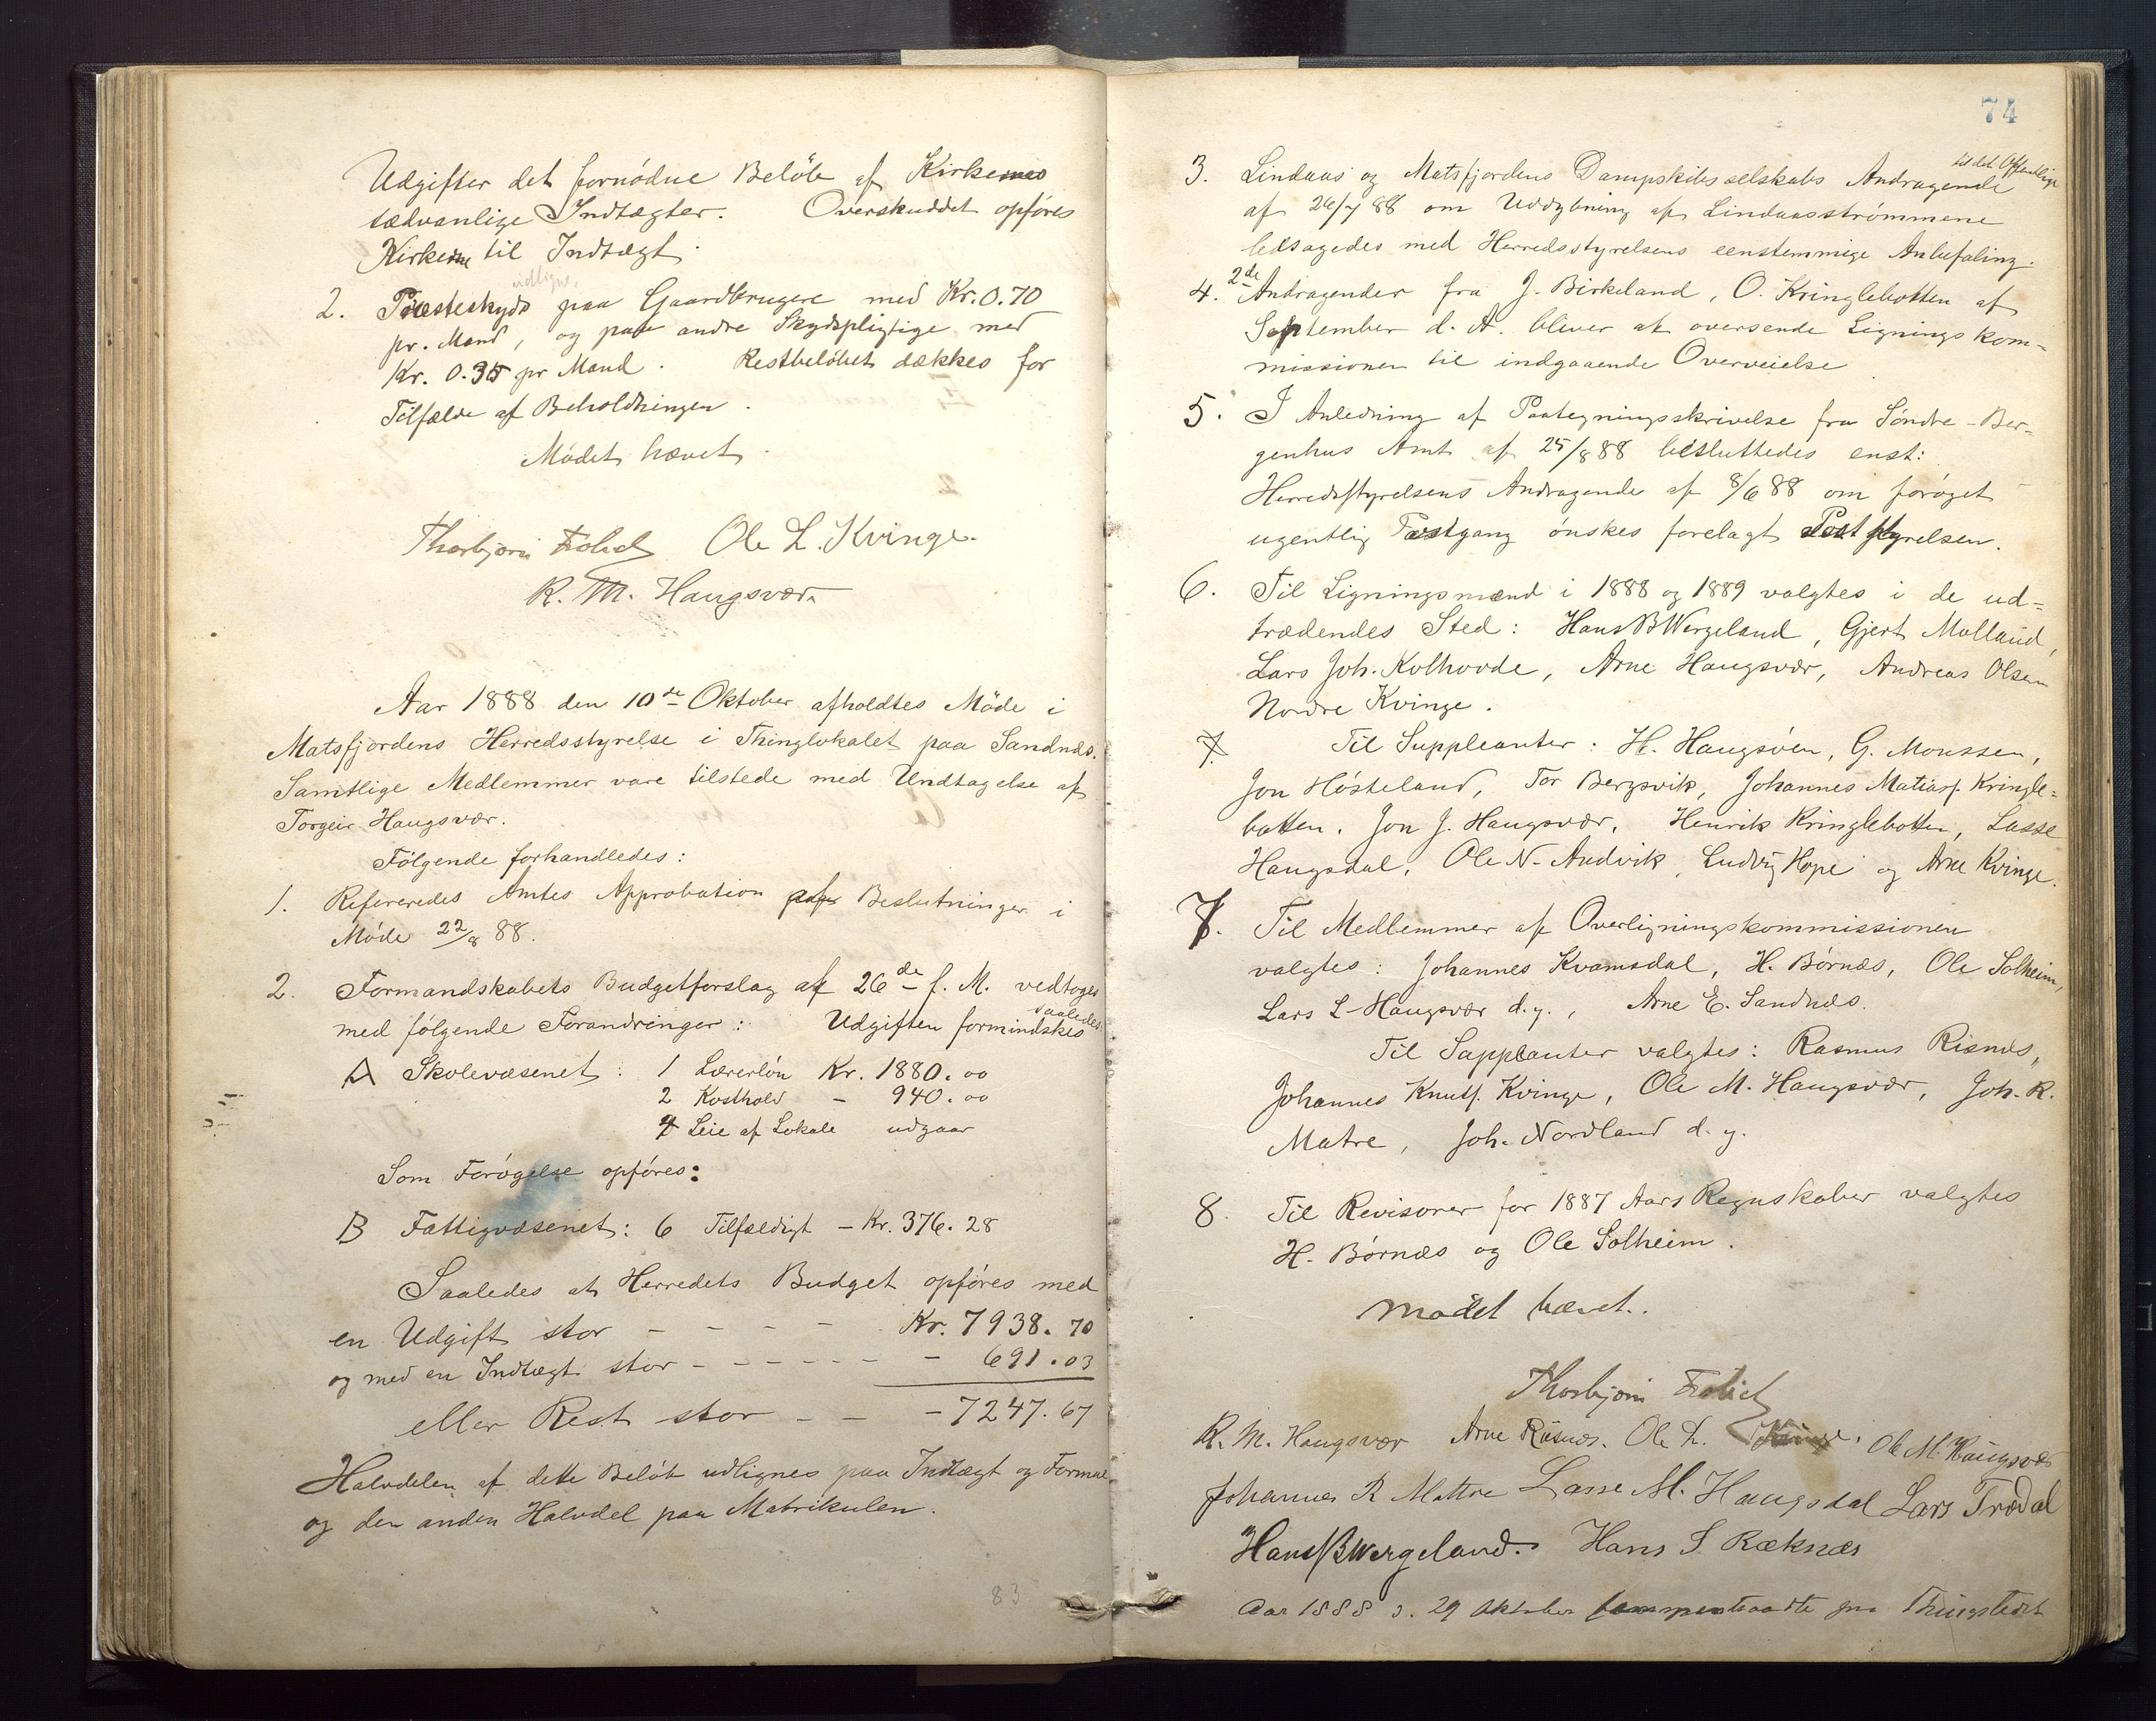 Udgifter det fornødne Beløb af Kirkernes
sædvanlige Indtægter. Overskuddet opføres
Kirkerne til Indtægt.
udligne
2. Præsteskyds paa Gaardbrugere med Kr. 0.70
pr. Mand, og paa andre Skydspligtige med
Kr. 0.35 pr Mand. Restbeløbet dækkes for
Tilfælde af Beholdningen.
Mødet hævet.
Ole L. Kvinge.
R. M. Haugsvær
Aar 1888 den 10de Oktober afholdtes Møde i
Matsfjordens Herredsstyrelse i Thinglokalet paa Sandnæs.
Samtlige Medlemmer vare tilstede med Undtagelse af
Torgeir Haugsvær.
Følgende forhandledes:
1. Refereredes Amtes Approbation paa Beslutninger i
Møde 22/8 88.
2. Formandskabets Budgetforslag af 26de f. M. vedtoges
saaledes
med følgende Forandringer: Udgiften formindskes
A Skolevæsenet: 1 Lærerløn Kr. 1880.00
2 Kosthold - 940.00
4 Leie af Lokale udgaar
Som Forøgelse opføres:
B Fattigvæsenet: 6 Tilfældigt - Kr. 376.28
Saaledes at Herredets Budget opføres med
en Udgift stor - - - - Kr. 7938.70
og med en Indtægt stor - - - - - - 691.03
eller Rest stor - - - 7247.67
Halvdelen af dette Beløb udlignes paa Indtægt og Formue
og den anden Halvdel paa Matrikulen.
83
74
til det Offentlige
3. Lindaas og Matsfjordens Dampskibsselskabs Andragende
af 26/7 88 om Uddybning af Lindaasstrømmene
ledsagedes med Herredsstyrelsens eenstemmige Anbefaling.
4. 2de Andragender fra J. Birkeland, O. Kringlebotten af
September d. A. bliver at oversende Ligningskom=
missionen til indgaaende Overveielse
5. I Anledning af Paategningsskrivelse fra Søndre-Ber=
genhus Amt af 25/8 88 besluttedes enst:
Herredsstyrelsens Andragende af 8/6 88 om forøget
ugentlig Postgang ønskes forelagt Poststyrelsen.
6. Til Ligningsmænd i 1888 og 1889 valgtes i de ud=
trædendes Sted: Hans B Wergeland, Gjert Molland,
Lars Joh. Kolhovde, Arne Haugsvær, Andreas Olsen
Nordre Kvinge.
7. Til Suppleanter: H. Haugsøen, G. Monssen,
Jon Høsteland, Tor Bergsvik, Johannes Matiass. Kringle=
botten. Jon J. Haugsvær. Henrik Kringlebotten, Lasse
Haugsdal, Ole N. Andvik, Ludvig Hope og Arne Kvinge.
7. Til Medlemmer af Overligningskommissionen
valgtes: Johannes Kvamsdal, H. Børnæs, Ole Solheim,
Lars L. Haugsvær d.y., Arne E. Sandnæs.
Til Supplanter valgtes: Rasmus Risnæs,
Johannes Knuts. Kvinge, Ole M. Haugsvær, Joh. R.
Matre, Joh. Nordland d.y.
8. Til Revisorer for 1887 Aars Regnskaber valgtes
H. Børnæs og Ole Solheim.
Mødet hævet.
R. M. Haugsvær Arne Risnæs. Ole L. Kvinge. Ole M. Haugsvær
Johannes R Mattre Lasse M. Haugsdal Lars Trædal
Hans B Wergeland. Hans S Ræknæs
Aar 1888 d. 29 Oktober sammentraadte paa Thingstedet